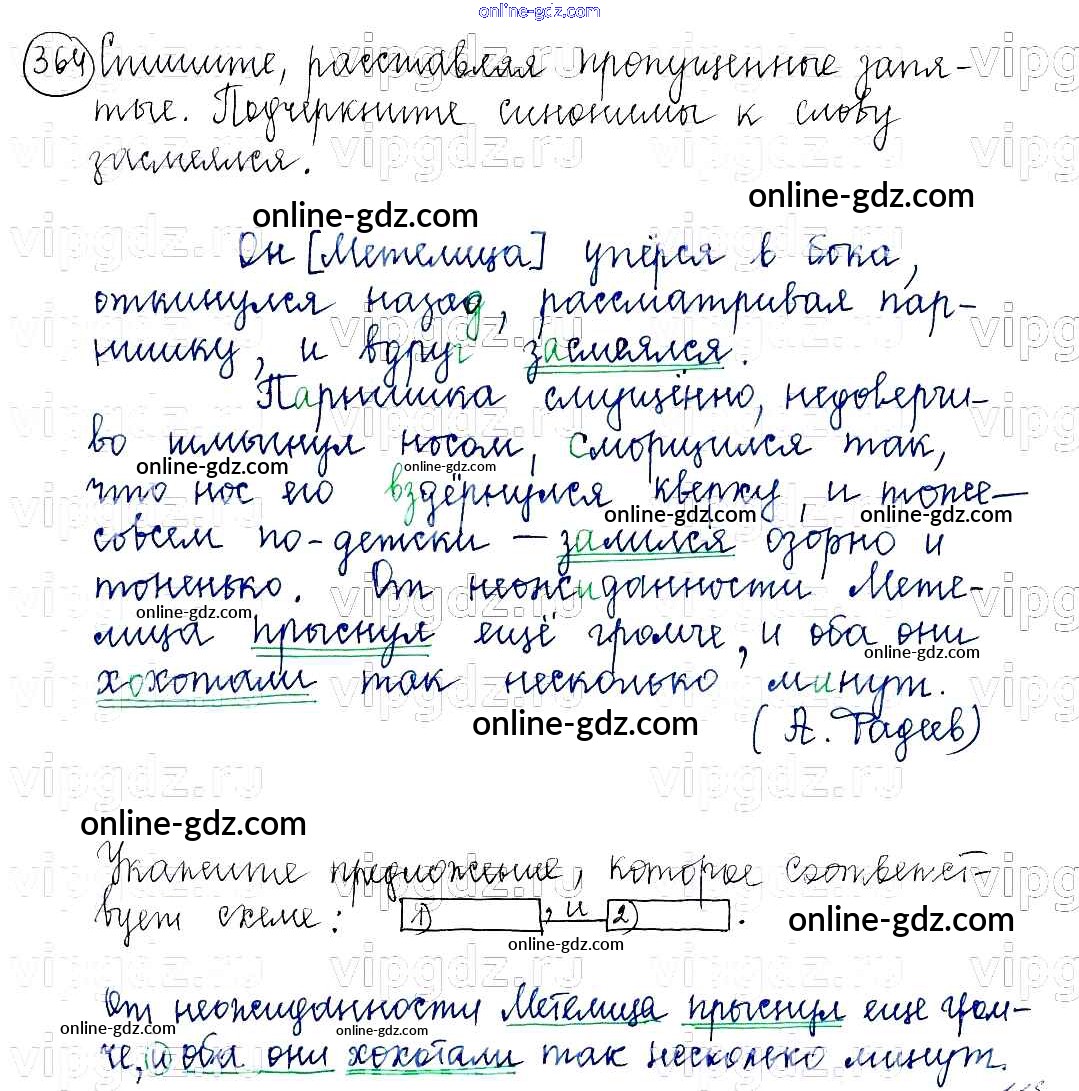 online-gdz.com
364 Спишите, расставляя пропущенные запя-
тые. Подчеркните синонимы к слову
засмеялся.
online-gdz.com
online-gdz.com
Он [Метелица] упёрся в бока,
откинулся назад, рассматривал пар-
нишку, и вдруг засмеялся.
Парнишка смущённо, недоверчи-
во шмыгнул носом, сморщился так,
online-gdz.com online-gdz.com
что нос его вздёрнулся кверху, и тоже —
online-gdz.com online-gdz.com
совсем по-детски — залился озорно и
тоненько. От неожиданности Мете-
online-gdz.com
лица прыснул ещё громче, и оба они
online-gdz.com
хохотали так несколько минут.
online-gdz.com
(А. Фадеев)
online-gdz.com
Укажите предложение, которое соответст-
вует схеме: 1) , и 2) .
online-gdz.com
online-gdz.com
От неожиданности Метелица прыснул еще гром-
online-gdz.com online-gdz.com online-gdz.com
че, и оба они хохотали так несколько минут.